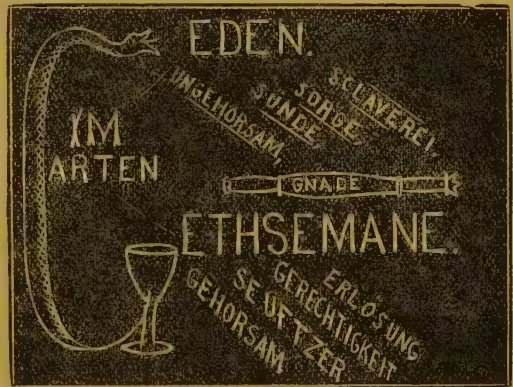 EDEN.
UNGEHORSAM,
SÜNDE,
SORGE,
SCLAVEREI,
IM
ARTEN
GNADE
ETHSEMANE.
GEHORSAM
SEUFTZER
GERECHTIGKEIT
ERLÖSUNG